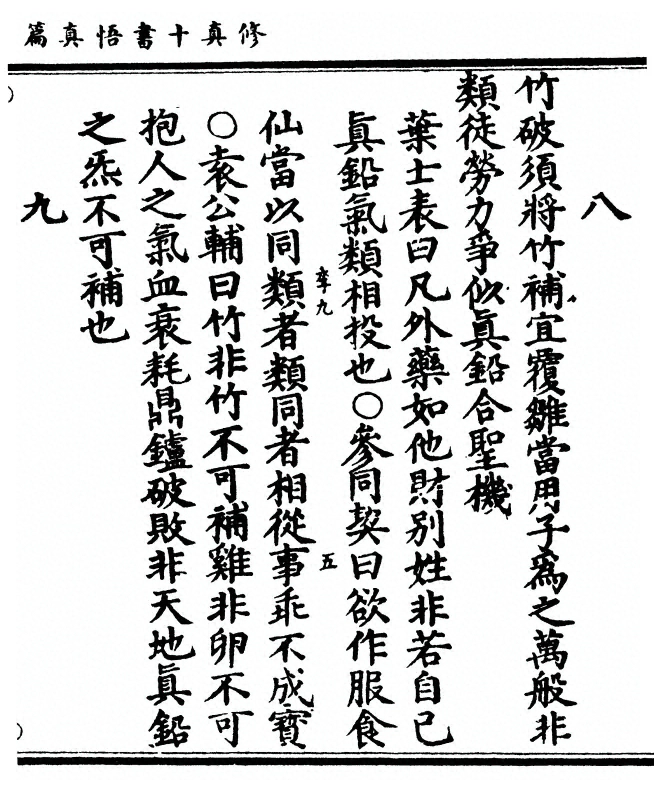 修真十書悟真篇
八
竹破須將竹補宜覆雞當用子爲之萬般非
類徒勞力爭似眞鉛合聖機
葉士表曰凡外藥如他財別姓非若自己
眞鉛氣類相投也〇參同契曰欲作服食
仙當以同類者類同者相從事乖不成寶
〇袁公輔曰竹非竹不可補雞非卵不可
抱人之氣血衰耗鼎鑪破敗非天地眞鉛
之炁不可補也
九
五